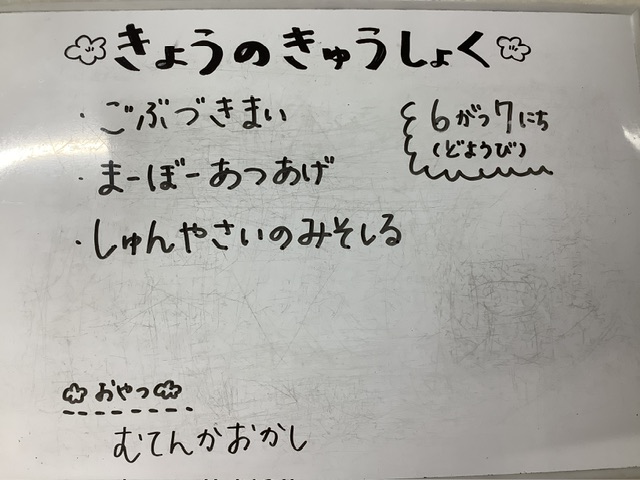 きょうのきゅうしょく
・ごぶづきまい
6がつ7にち
(どようび)
・まーぼーあつあげ
・しゅんやさいのみそしる
おやつ
むてんかおかし